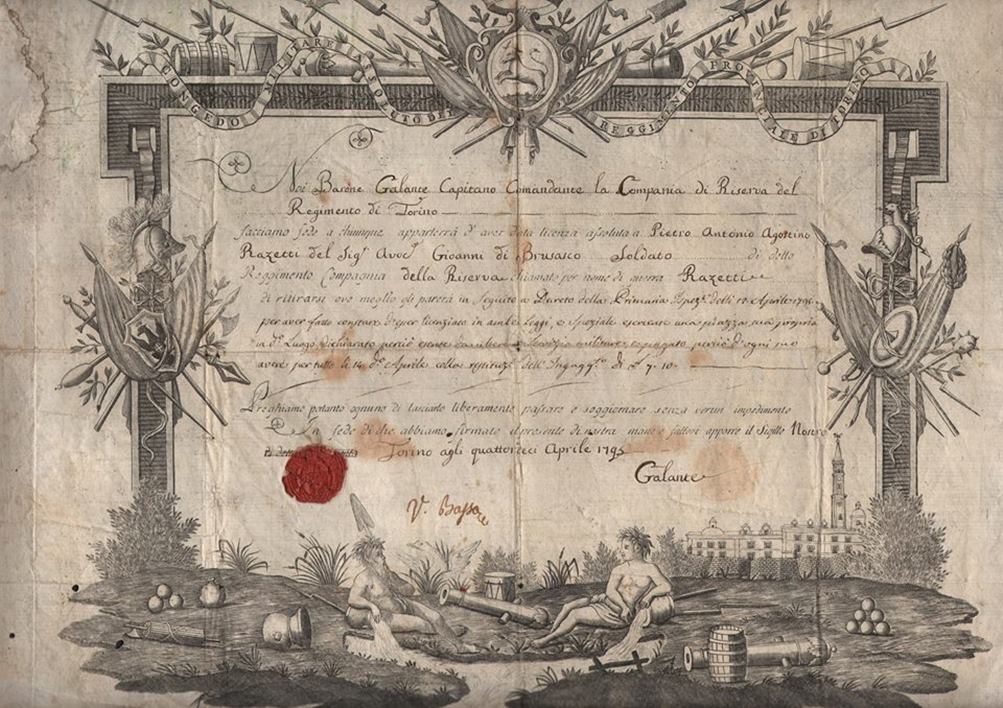 CONGEDO MILITARE ASSOLUTO DEL REGGIMENTO PROVINCIALE DI TORINO
Noi Barone Galante Capitano Comandante la Compania di Riserva del
Regimento di Torino
facciamo fede a chiunque apparterrà d'aver data licenza assoluta a Pietro Antonio Agostino
Razetti del Sigr Avoc Gioanni di Brusasco Soldato di detto
Reggimento Compagnia della Riserva chiamato per nome di guerra Razetti
di ritirarsi ove meglio gli parerà in seguito a Decreto della Primaria delli Aprile
per aver fatto constare d'esser licenziato in ambe Leggi, e Speziale esercente una piazza sua propria
in do Luogo, dichiarato perciò esente da servizio militare e pagato perciò d'ogni suo
avere per tutto li 14 do Aprile colla dell' di 7. 10.
Preghiamo pertanto ognuno di lasciarlo liberamente passare e soggiornare senza verun impedimento
In fede di che abbiamo firmato il presente di nostra mano e fattovi apporre il Sigillo Nostro
Torino agli quattordeci Aprile 1795
Galante
V. Basso